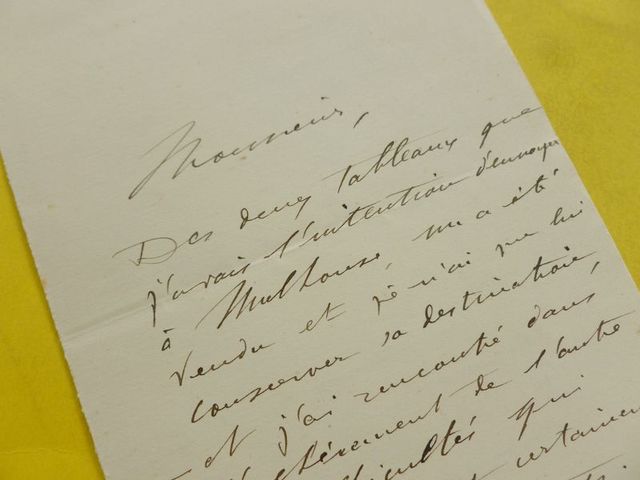 Monsieur,
Des deux tableaux que
j'avais l'intention d'envoyer
à Mulhouse, un a été
vendu et je n'ai pu lui
conserver sa destination,
et j'ai rencontré dans
de l'autre
qui
certainement